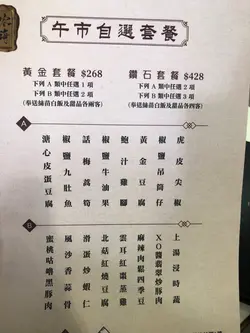 午市自選套餐
黃金套餐 $268
下列 A 類中任選 1 項
下列 B 類中任選 2 項
(奉送絲苗白飯及甜品各兩客)
鑽石套餐 $428
下列 A 類中任選 2 項
下列 B 類中任選 3 項
(奉送絲苗白飯及甜品各四客)
A
虎皮尖椒
椒鹽吊筒仔
黃金豆腐
鮑汁雞腳
椒鹽牛油果
話梅
椒鹽九肚魚
溏心皮蛋豆腐
B
上湯浸時蔬
XO醬翡翠炒豚肉
麻辣肉鬆四季豆
雲耳紅棗蒸雞
北菇紅燒豆腐
滑蛋炒蝦仁
風沙香蒜骨
蜜桃咕嚕黑豚肉